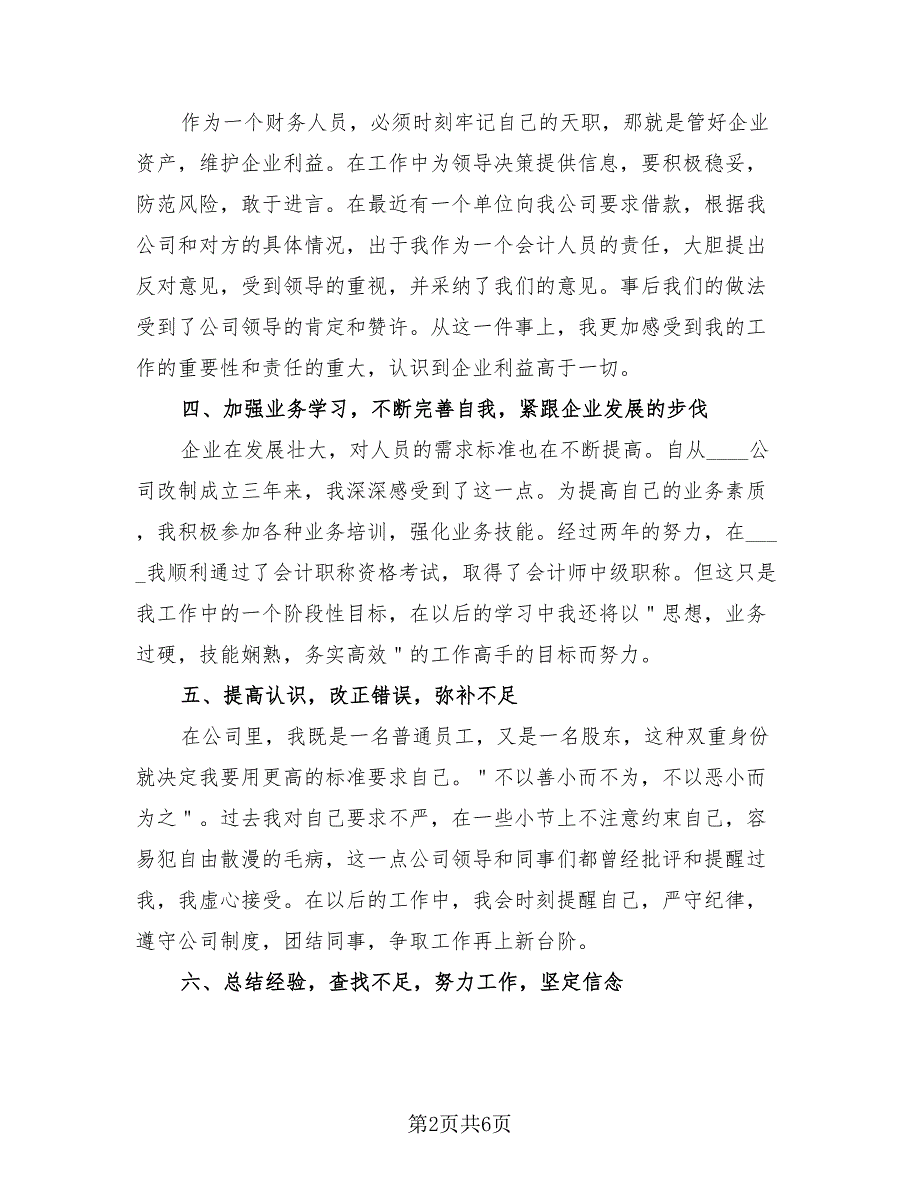 作为一个财务人员，必须时刻牢记自己的天职，那就是管好企业
资产，维护企业利益。在工作中为领导决策提供信息，要积极稳妥，
防范风险，敢于进言。在最近有一个单位向我公司要求借款，根据我
公司和对方的具体情况，出于我作为一个会计人员的责任，大胆提出
反对意见，受到领导的重视，并采纳了我们的意见。事后我们的做法
受到了公司领导的肯定和赞许。从这一件事上，我更加感受到我的工
作的重要性和责任的重大，认识到企业利益高于一切。
四、加强业务学习，不断完善自我，紧跟企业发展的步伐
企业在发展壮大，对人员的需求标准也在不断提高。自从____公
司改制成立三年来，我深深感受到了这一点。为提高自己的业务素质
，我积极参加各种业务培训，强化业务技能。经过两年的努力，在___
_我顺利通过了会计职称资格考试，取得了会计师中级职称。但这只是
我工作中的一个阶段性目标，在以后的学习中我还将以＂思想，业务
过硬，技能娴熟，务实高效＂的工作高手的目标而努力。
五、提高认识，改正错误，弥补不足
在公司里，我既是一名普通员工，又是一名股东，这种双重身份
就决定我要用更高的标准要求自己。＂不以善小而不为，不以恶小而
为之＂。过去我对自己要求不严，在一些小节上不注意约束自己，容
易犯自由散漫的毛病，这一点公司领导和同事们都曾经批评和提醒过
我，我虚心接受。在以后的工作中，我会时刻提醒自己，严守纪律，
遵守公司制度，团结同事，争取工作再上新台阶。
六、总结经验，查找不足，努力工作，坚定信念
第2页共6页